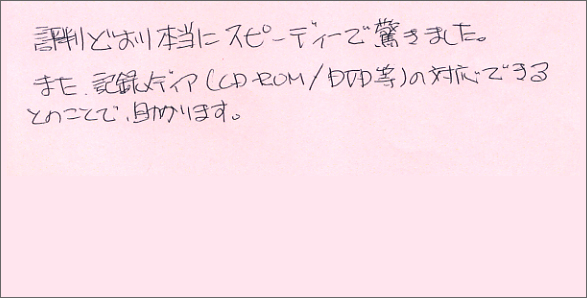 評判どおり本当にスピーディーで驚きました。
また、記録メディア(CD-ROM/DVD等)の対応できる
とのことで、助かります。